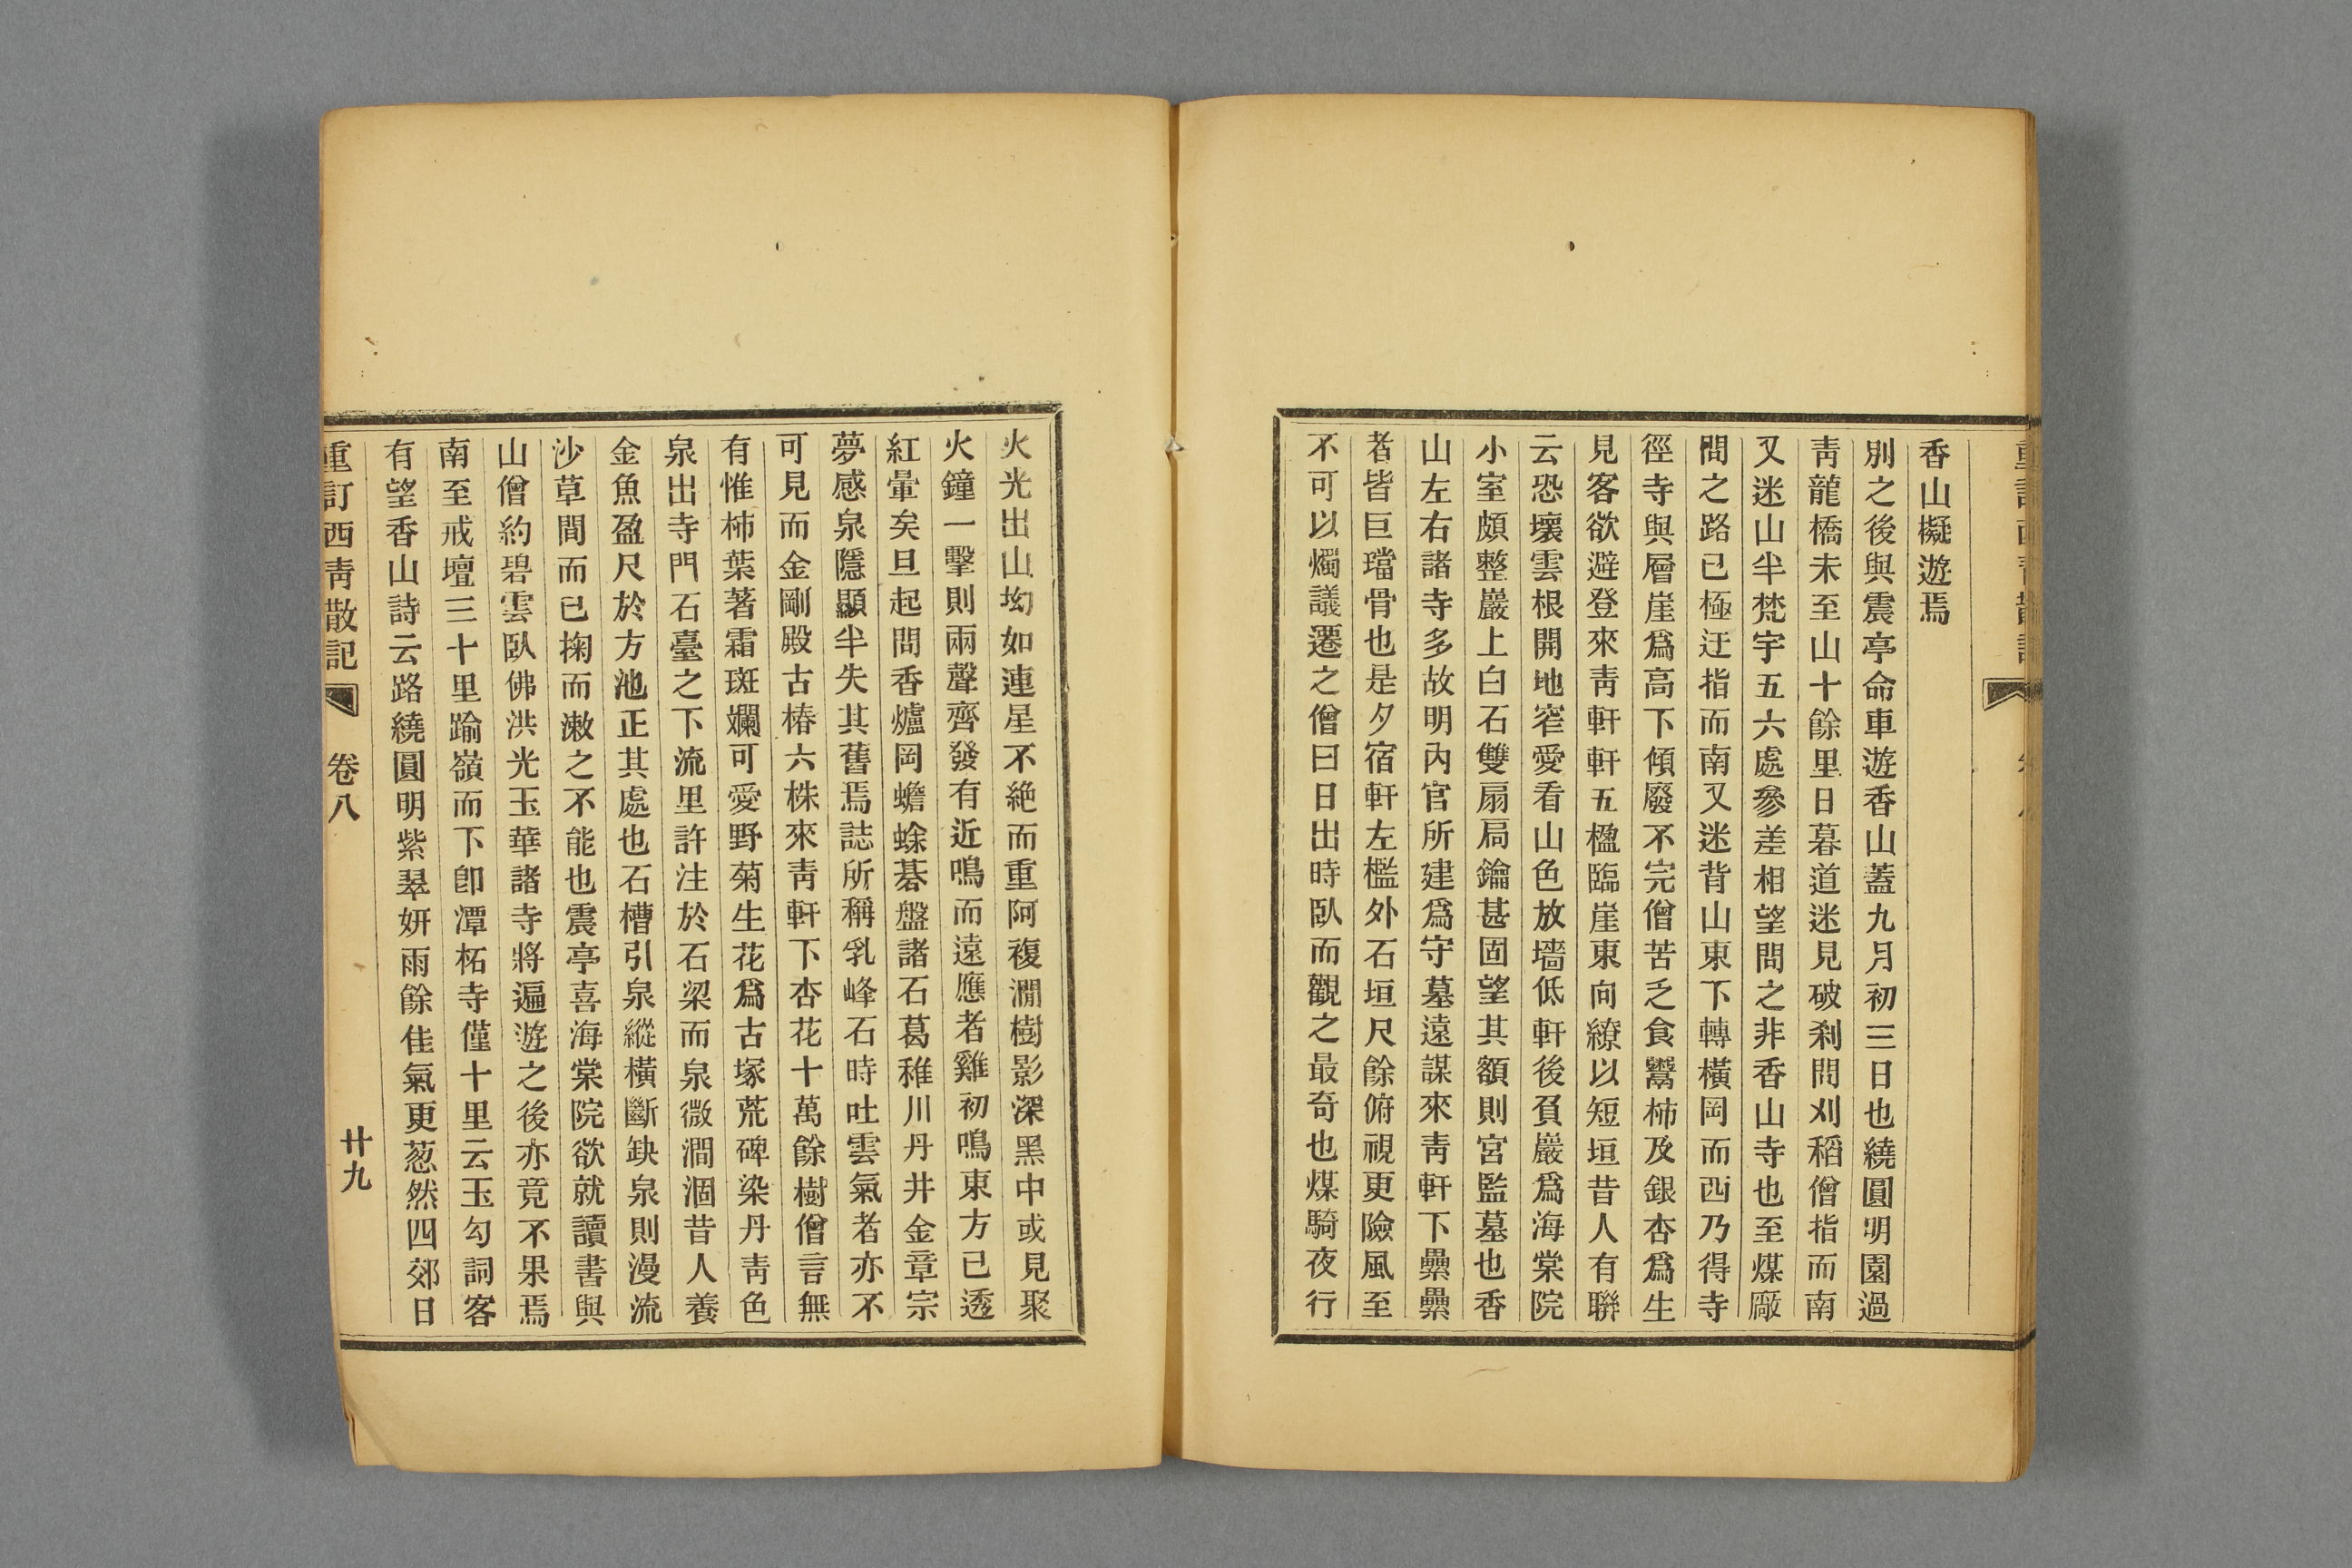 香山礙遊焉
別之後與震亭命車遊香山蓋九月初三日也繞圓明園過
靑龍橋未至山十餘里日暮道迷見破刹問刈稻僧指而南
又迷山半梵宇五六處參差相望問之非香山寺也至煤廠
問之路已極迂指而南又迷背山東下轉橫岡而西乃得寺
徑寺與層崖爲高下傾廢不完僧苦乏食鬻柿及銀杏爲生
見客欲避登來靑軒軒五楹臨崖東向繚以短垣昔人有聯
云恐壞雲根開地窄愛看山色放墻低軒後負巖爲海棠院
小室頗整巖上白石雙扇扃鑰甚固望其額則宮監墓也香
山左右諸寺多故明內官所建爲守墓遠謀來靑軒下纍纍
者皆巨璫骨也是夕宿軒左檻外石垣尺餘俯視更險風至
不可以燭議遷之僧曰日出時臥而觀之最奇也煤騎夜行
火光出山坳如連星不絶而重阿複澗樹影深黑中或見聚
火鐘一擊則兩聲齊發有近鳴而遠應者雞初鳴東方已透
紅暈矣旦起問香爐岡蟾蜍碁盤諸石葛稚川丹井金章宗
夢感泉隱顯半失其舊焉誌所稱乳峰石時吐雲氣者亦不
可見而金剛殿古椿六株來靑軒下杏花十萬餘樹僧言無
有惟柿葉著霜斑斕可愛野菊生花爲古塚荒碑染丹靑色
泉出寺門石臺之下流里許注於石梁而泉微澗涸昔人養
金魚盈尺於方池正其處也石槽引泉縱橫斷缺泉則漫流
沙草間而已掬而漱之不能也震亭喜海棠院欲就讀書與
山僧約碧雲臥佛洪光玉華諸寺將遍遊之後亦竟不果焉
南至戒壇三十里踰嶺而下卽潭柘寺僅十里云玉勾詞客
有望香山詩云路繞圓明紫翠妍雨餘佳氣更葱然四郊日
重訂西靑散記　卷八　廿九